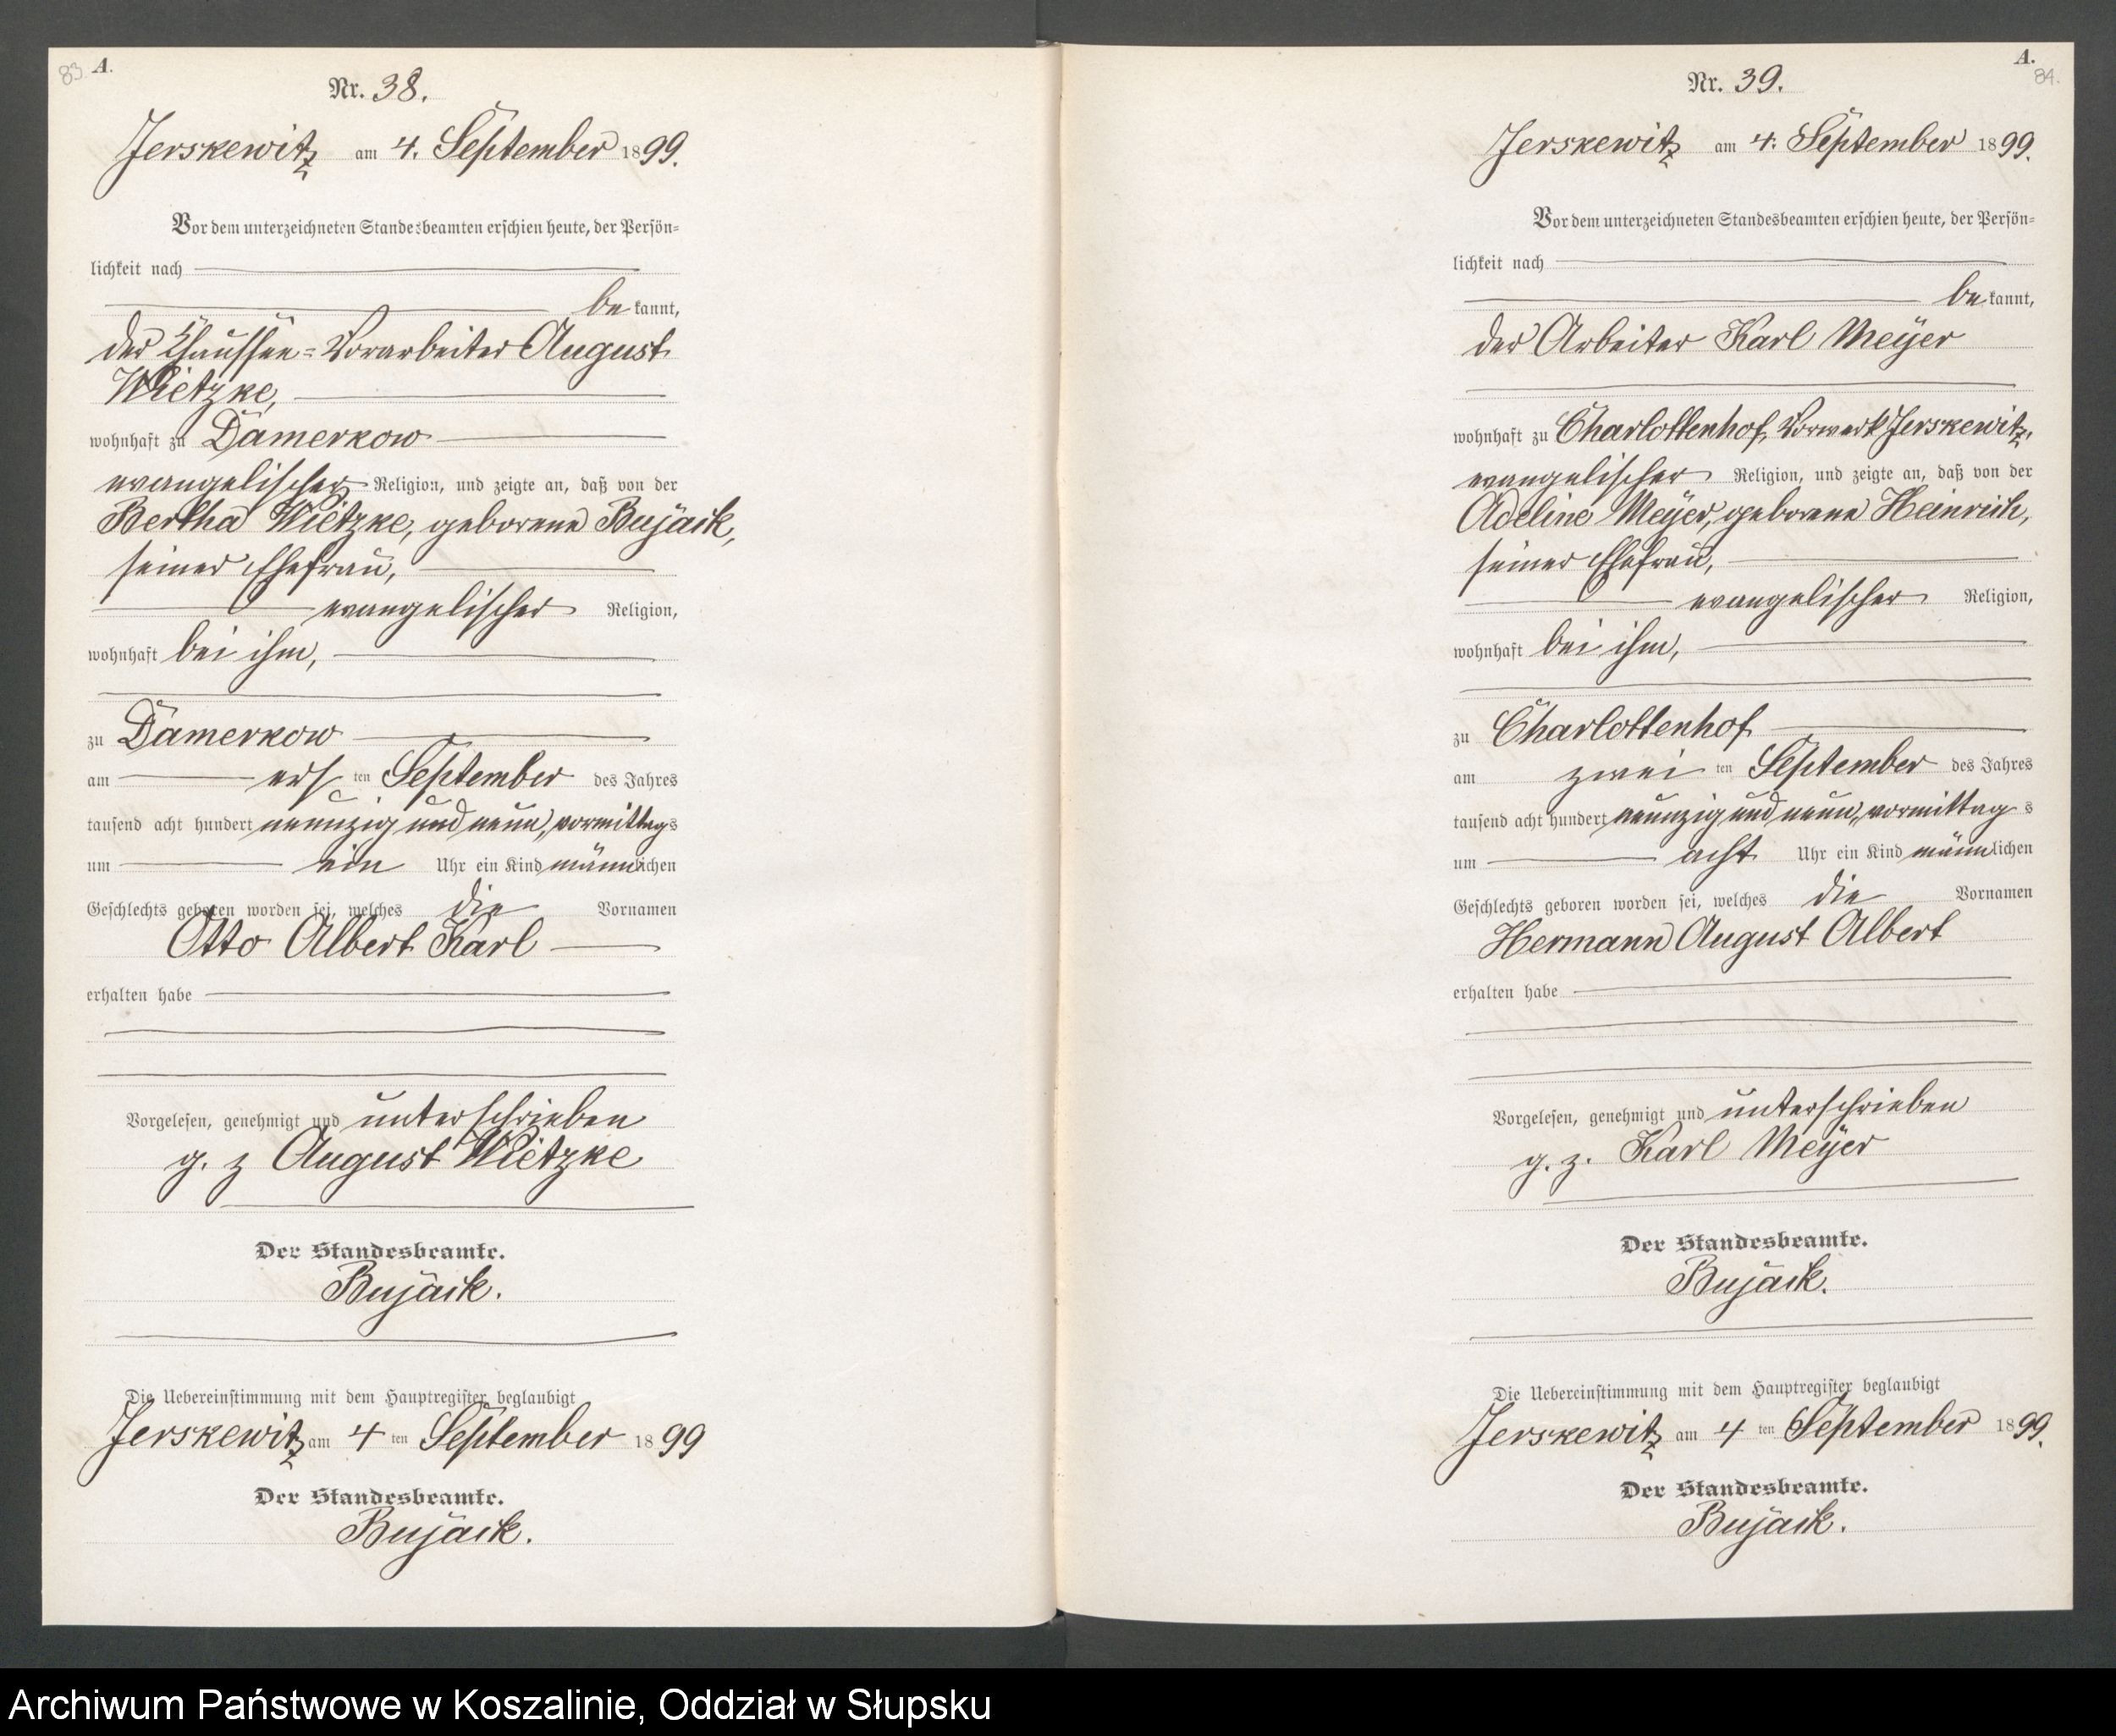 83 A.
Nr. 38.
Jerskewitz am 4. September 1899.
Vor dem unterzeichneten Standesbeamten erschien heute, der Persön-
lichkeit nach
be kannt,
der Chaussee-Vorarbeiter August
Wietzke,
wohnhaft zu Damerkow
evangelischer Religion, und zeigte an, daß von der
Bertha Wietzke, geborene Bujack,
seiner Ehefrau,
evangelischer Religion,
wohnhaft bei ihm,
zu Damerkow
am ersten September des Jahres
tausend acht hundert neunzig und neun, vormittags
um ein Uhr ein Kind männlichen
Geschlechts geboren worden sei, welches die Vornamen
Otto Albert Karl
erhalten habe
Vorgelesen, genehmigt und unterschrieben
g. z August Wietzke
Der Standesbeamte.
Bujack.
Die Uebereinstimmung mit dem Hauptregister beglaubigt
Jerskewitz am 4 ten September 1899
Der Standesbeamte.
Bujack.
A.
84.
Nr. 39.
Jerskewitz am 4. September 1899.
Vor dem unterzeichneten Standesbeamten erschien heute, der Persön-
lichkeit nach
be kannt,
der Arbeiter Karl Meÿer
wohnhaft zu Charlottenhof, Vorwerk Jerskewitz,
evangelischer Religion, und zeigte an, daß von der
Adeline Meÿer, geborene Heinrich,
seiner Ehefrau,
evangelischer Religion,
wohnhaft bei ihm,
zu Charlottenhof
am zwei ten September des Jahres
tausend acht hundert neunzig und neun, vormittags
um acht Uhr ein Kind männlichen
Geschlechts geboren worden sei, welches die Vornamen
Hermann August Albert
erhalten habe
Vorgelesen, genehmigt und unterschrieben
g. z. Karl Meÿer
Der Standesbeamte.
Bujack.
Die Uebereinstimmung mit dem Hauptregister beglaubigt
Jerskewitz am 4 ten September 1899.
Der Standesbeamte.
Bujack.
Archiwum Państwowe w Koszalinie, Oddział w Słupsku